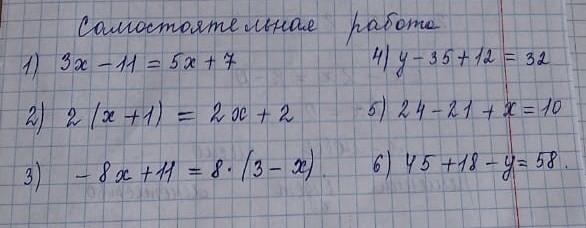 Самостоятельная работа
1) 3x - 11 = 5x + 7
4) y - 35 + 12 = 32
2) 2 (x + 1) = 2x + 2
5) 24 - 21 + x = 10
3) - 8x + 11 = 8 · (3 - x)
6) 45 + 18 - y = 58.